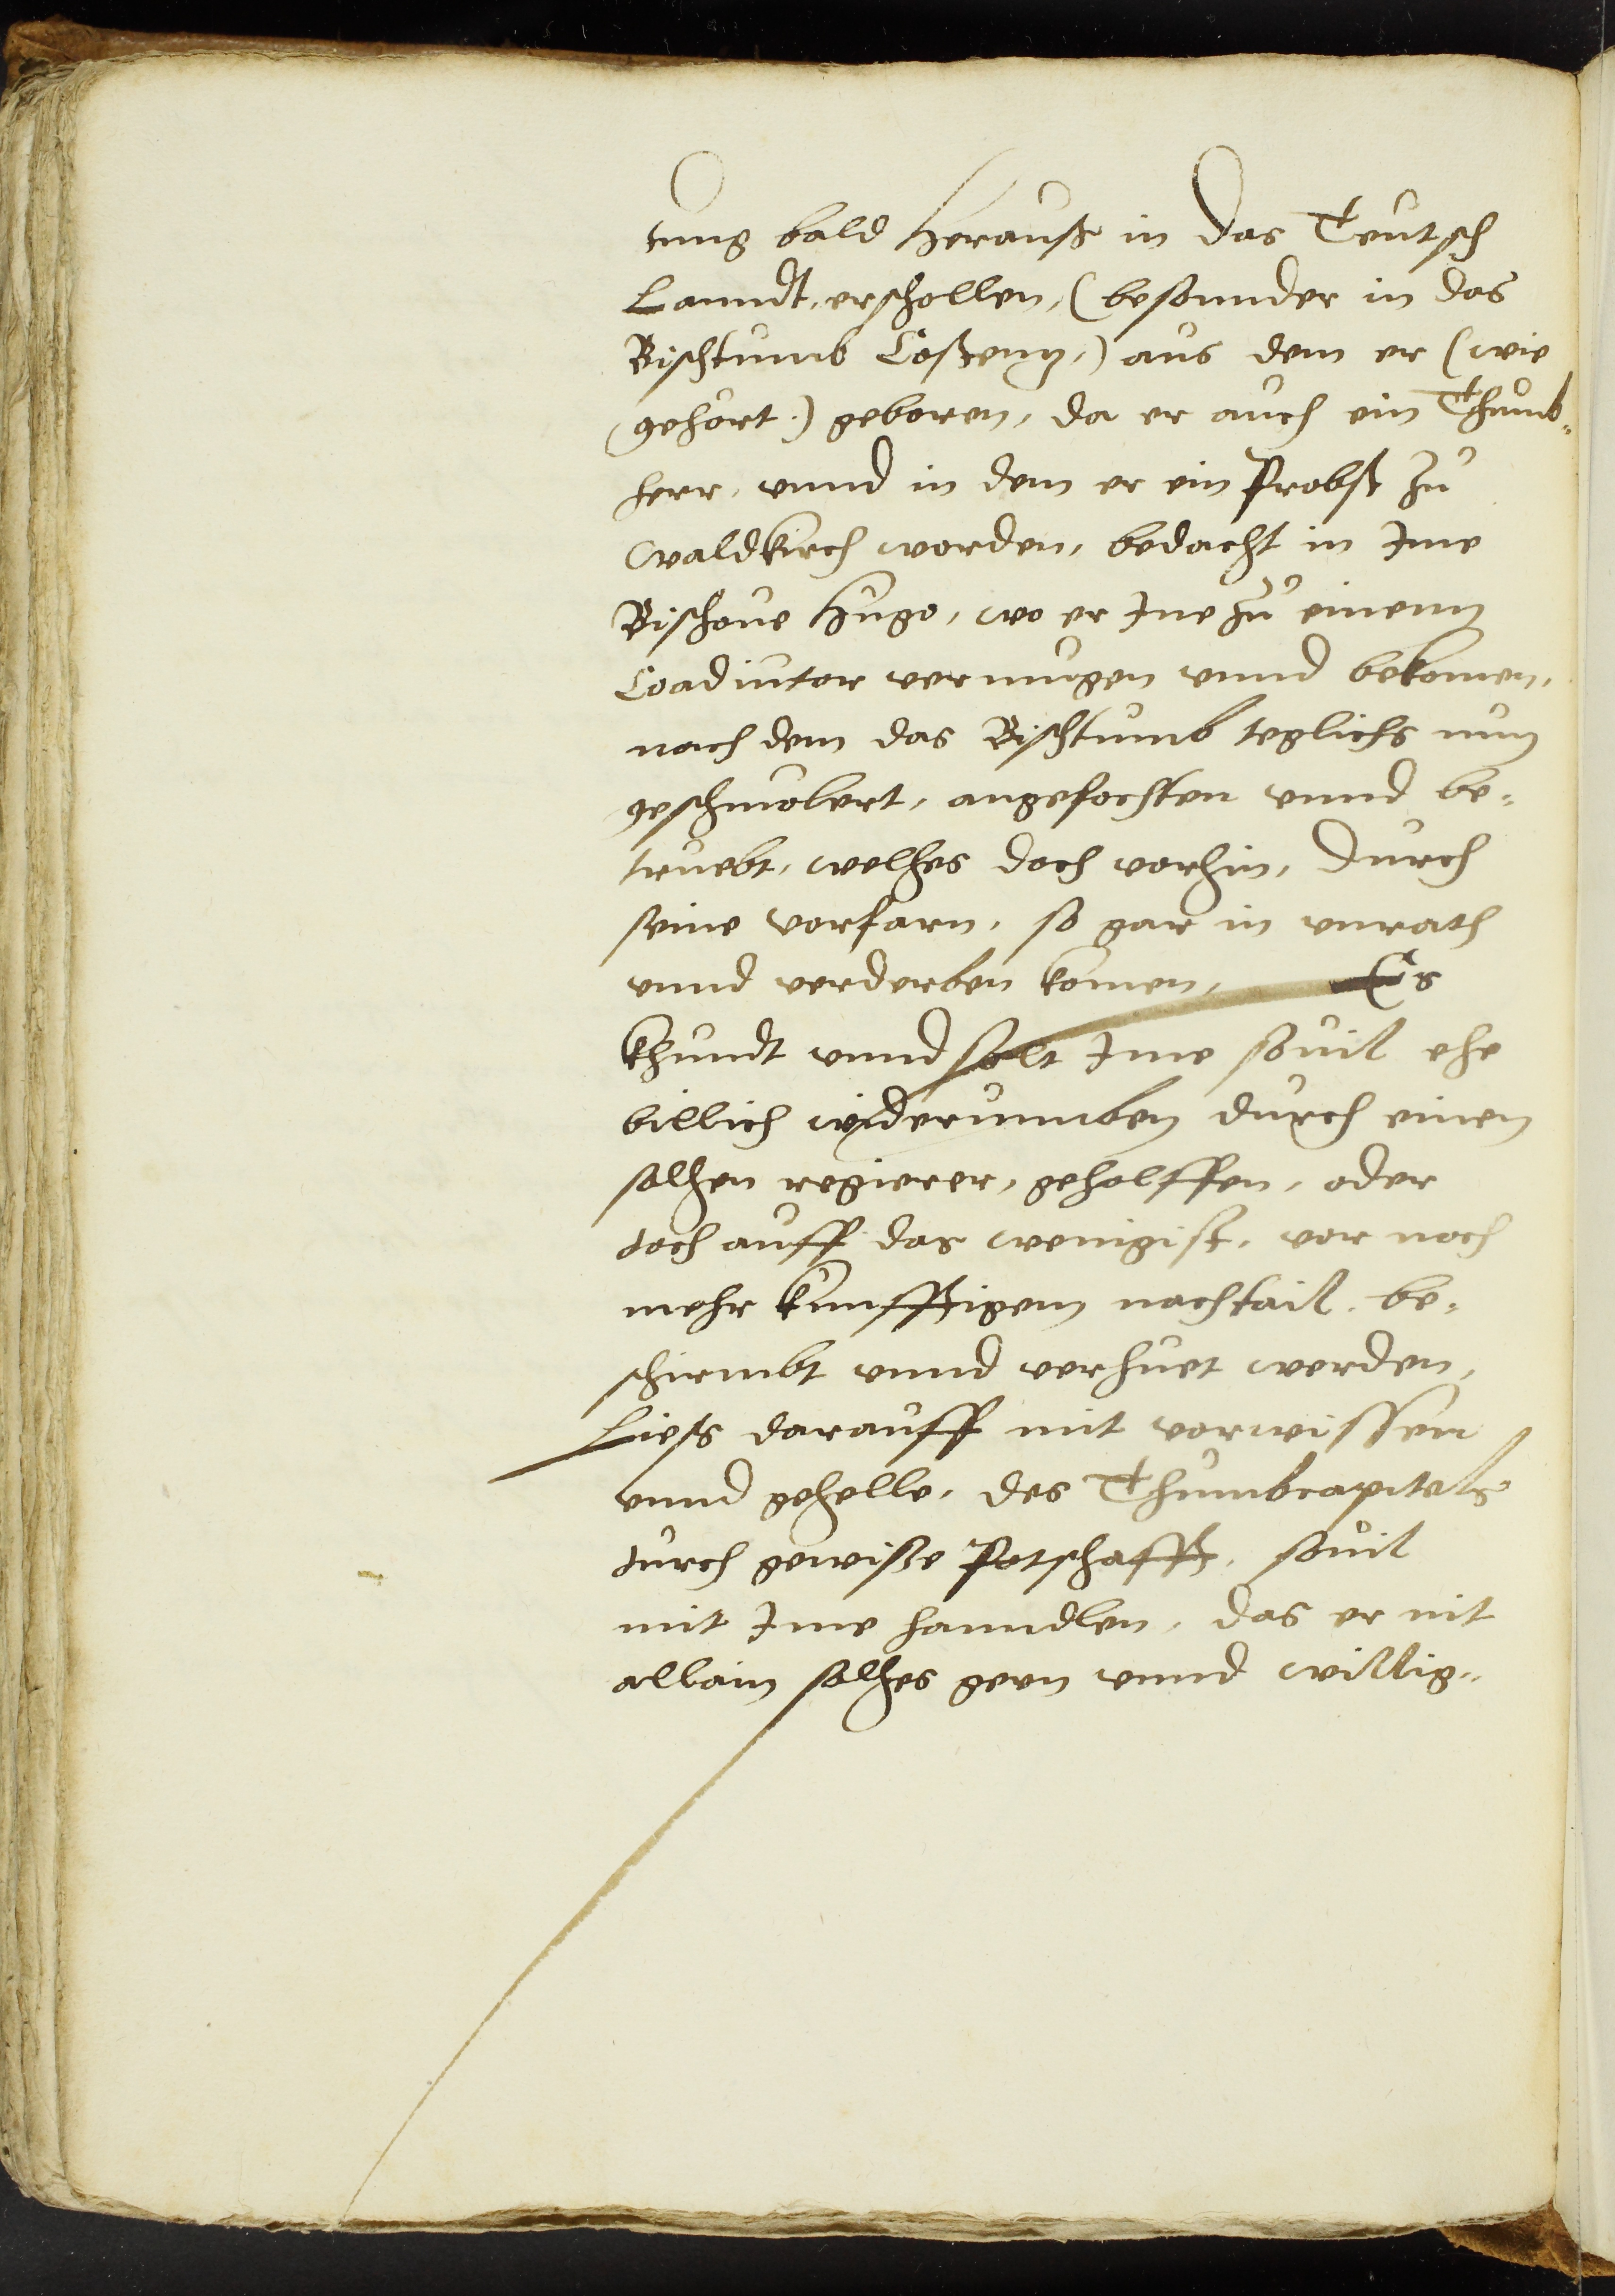 tung bald herauß in das Teutsch
Lanndt, erschollen, (besonnder in das
Bischtumb Costenz,) aus dem er (wie
gehört.) geboren, da er auch ein Thumb-
herr, vnnd in dem er ein Probst zů
Waldkirch worden, bedacht in Jme
Bischoue Hugo, wo er Jne zů einem
Coadiutor vermugen vnnd bekomen,
nach dem das Bischtumb teglichs nun
geschmolert, angefochten vnnd be-
truebt, welhes doch vorhin, durch
seine vorfarn, so gar in vnrath
vnnd verderben komen, Es
khundt vnnd solt Jme souil ehe
billich widerumben durch einen
solhen regierer, geholffen, oder
doch auff das wenigist, vor noch
mehr kunfftigem nachtail be-
schirmbt vnnd verhuet werden,
Liess darauff mit vorwissen
vnnd gehelle, des Thumbcapitels
durch gewisse Potschafft, souil
mit Jme hanndlen, das er nit
allain solhes gern vnnd willig-